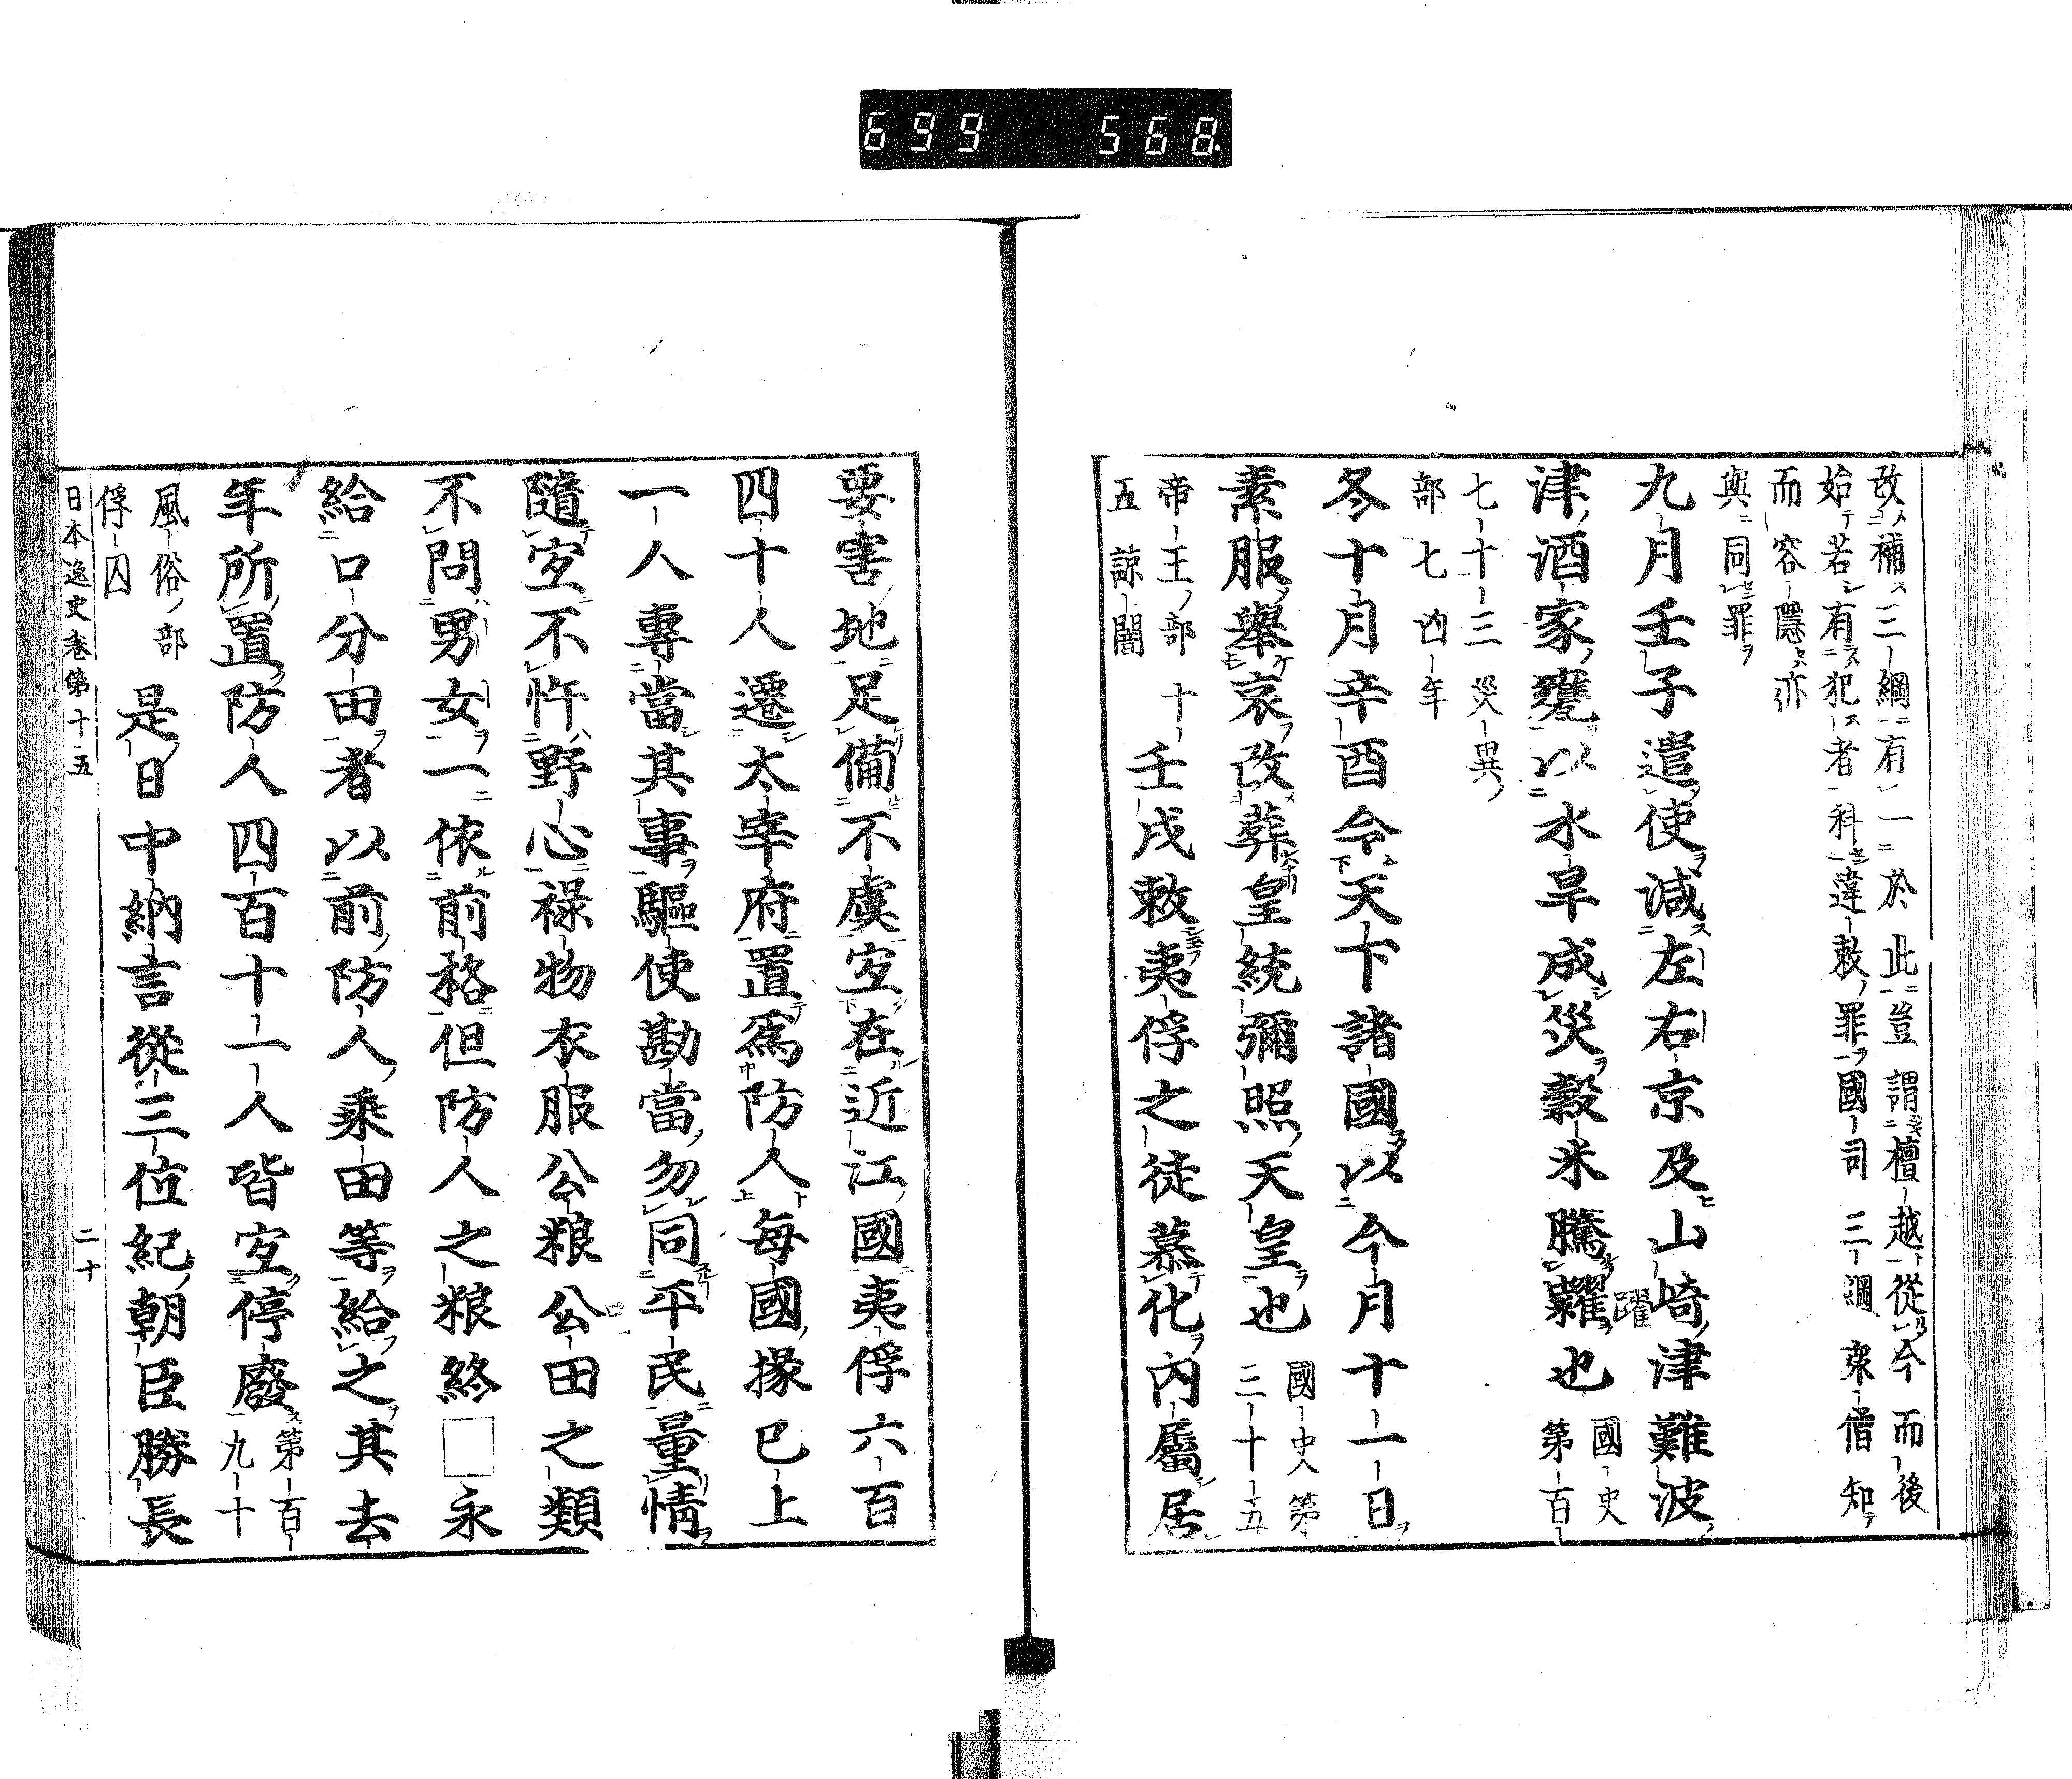 699 568
改補三綱有一於此豈謂檀越從今而後
始若有犯者科違敕罪國司三綱衆僧知
而容隱亦
與同罪
九月壬子遣使減左右京及山崎津難波
津酒家甕以水旱成災穀米騰躍也 國史第一百
躍
七十三災異
部七凶年
冬十月辛酉令天下諸國以今月十一日
素服舉哀改葬皇統彌照天皇也 國史第三十五
帝王部十
五諒闇
壬戌敕夷俘之徒慕化內屬居
要害地足備不虞宜在近江國夷俘六百
四十人遷太宰府置爲防人每國掾已上
一人專當其事驅使勘當勿同平民量情
隨宜不忤野心祿物衣服公粮公田之類
不問男女一依前格但防人之粮終□永
給口分田者以前防人乘田等給之其去
年所置防人四百十一人皆宜停廢 第一百九十
風俗部
俘囚
是日中納言從三位紀朝臣勝長
日本逸史卷第十五 二十